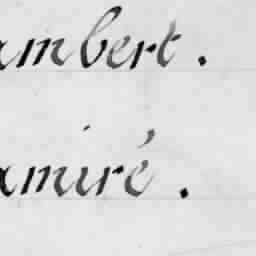 ambert.
amiré.